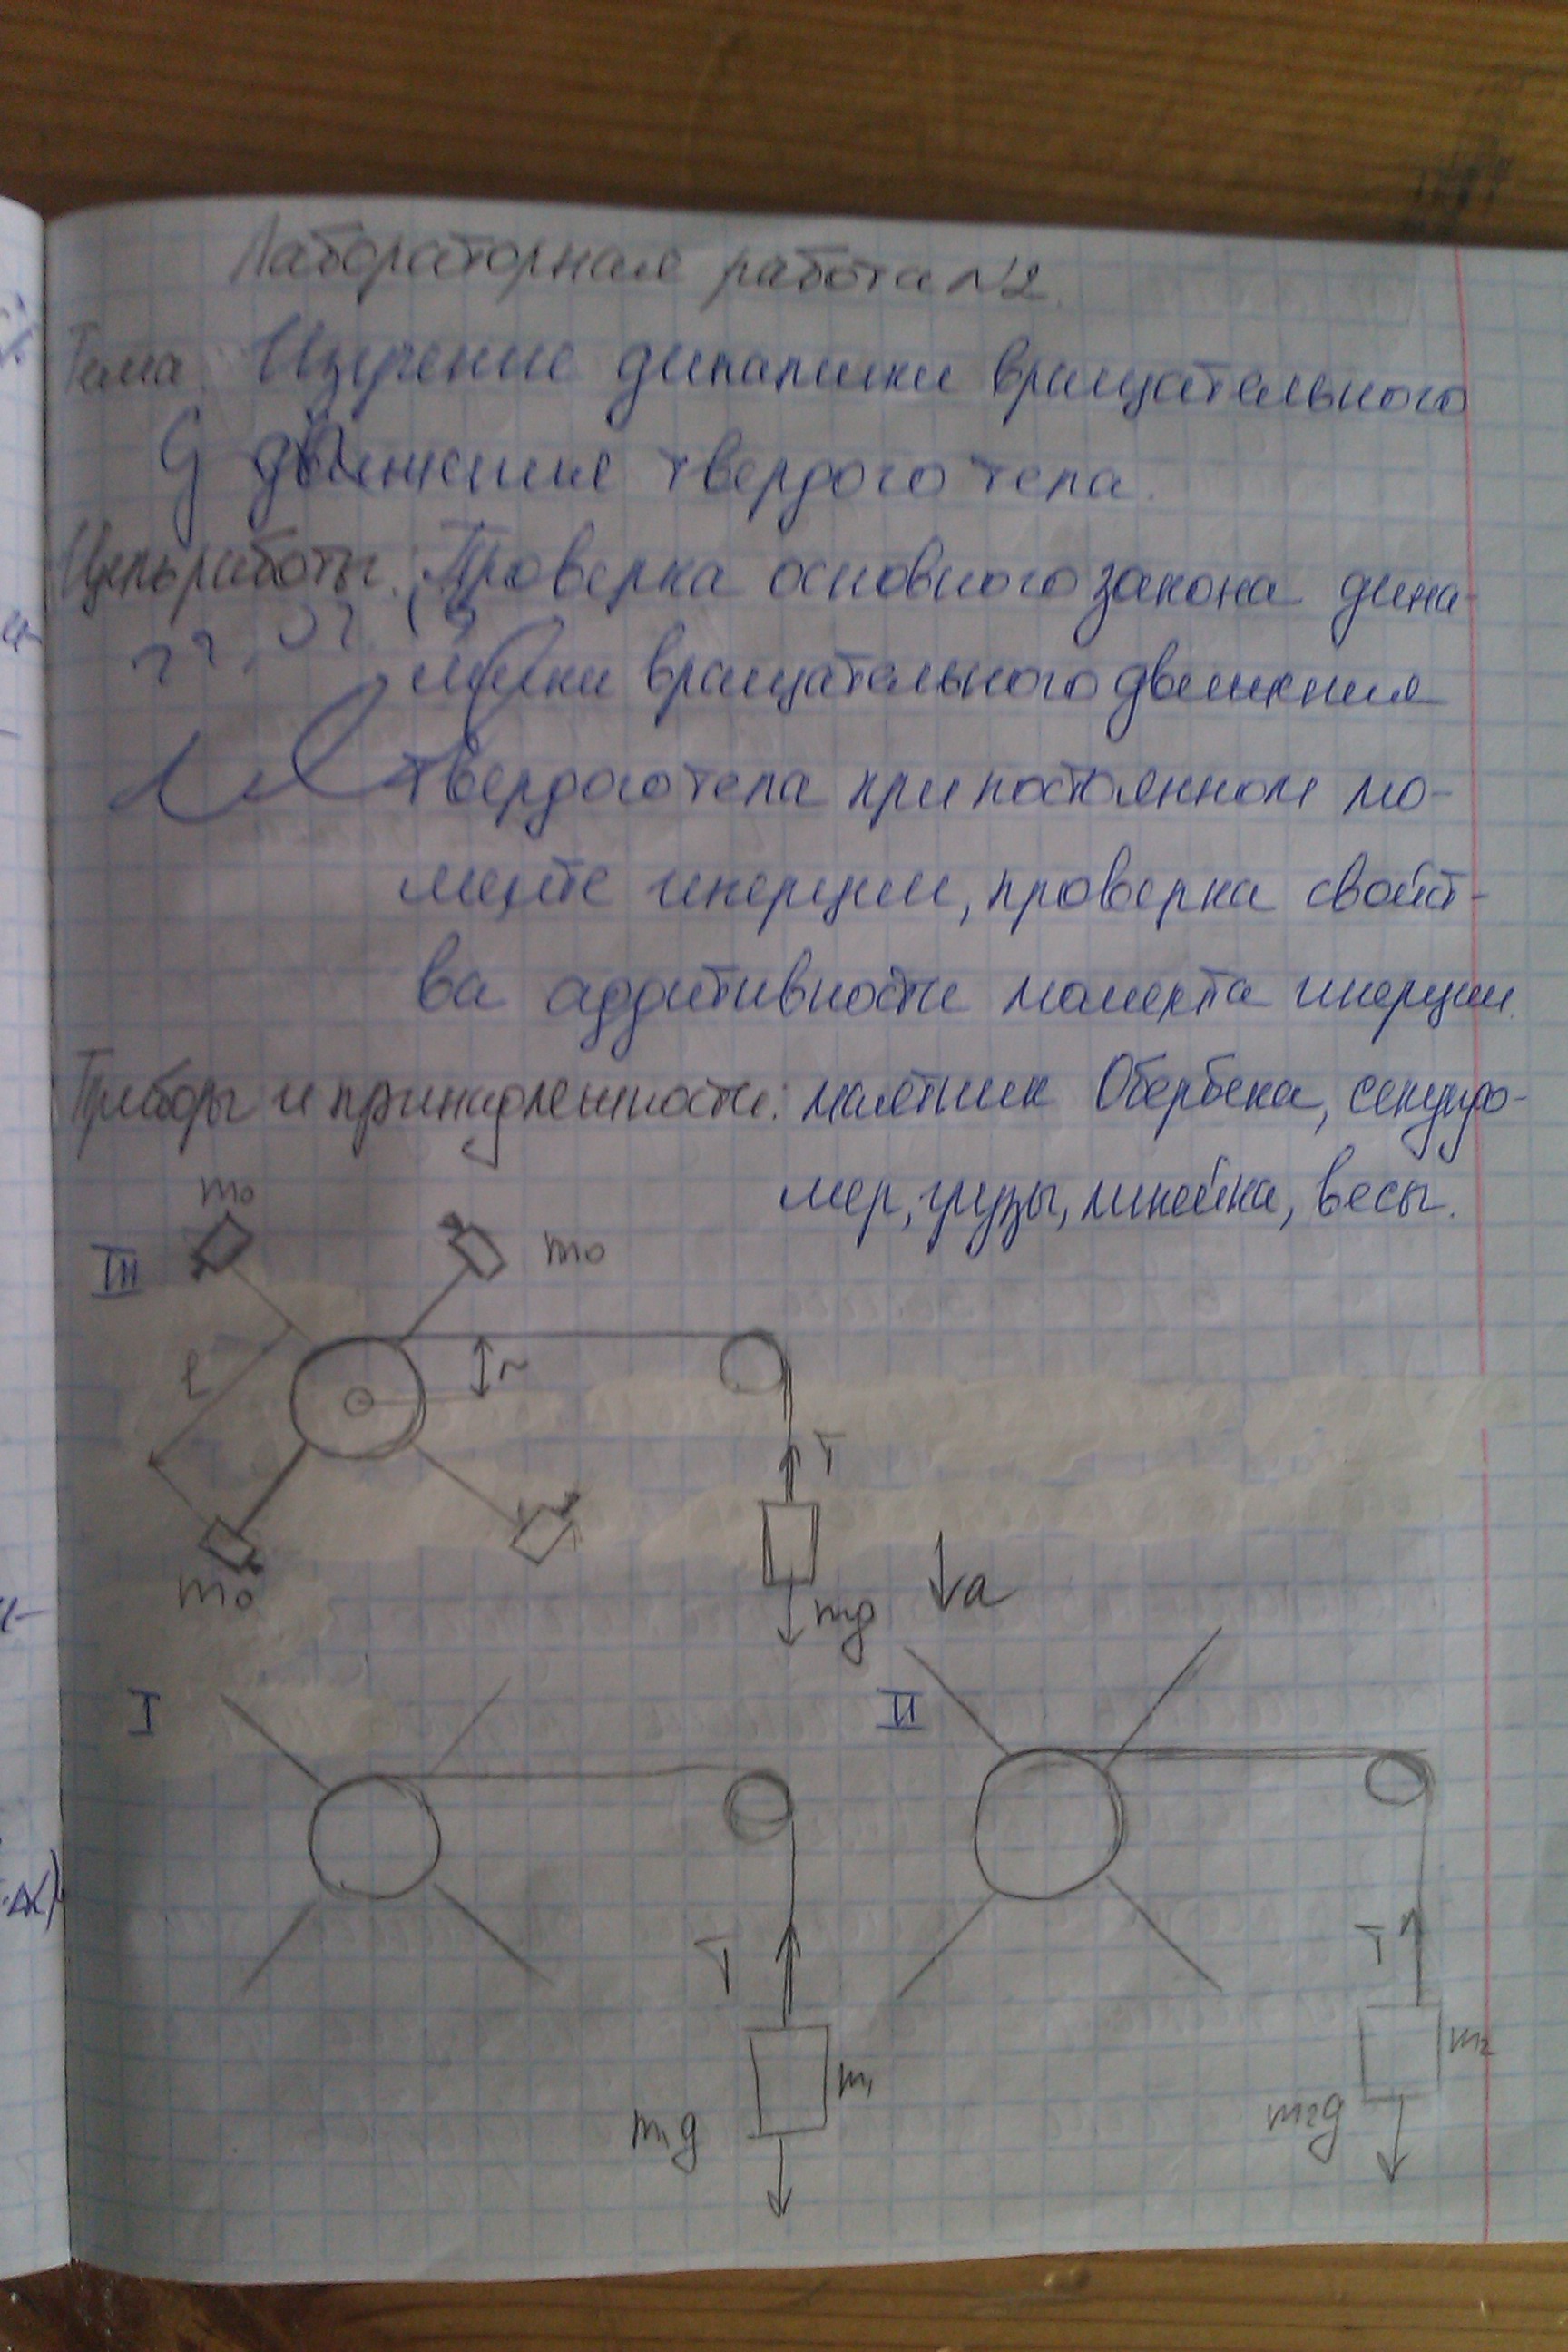 Лабораторная работа №2.
Тема. Изучение динамики вращательного
движения твердого тела.
Цель работы: Проверка основного закона дина-
мики вращательного движения
твердого тела при постоянном мо-
менте инерции, проверка свойст-
ва аддитивности момента инерции.
Приборы и принадлежности: маятник Обербека, секундо-
мер, грузы, линейка, весы.
m₀
III
m₀
l
r
T
m₀
mg
a
I
II
T
T
m₁
m₂
m₁g
m₂g